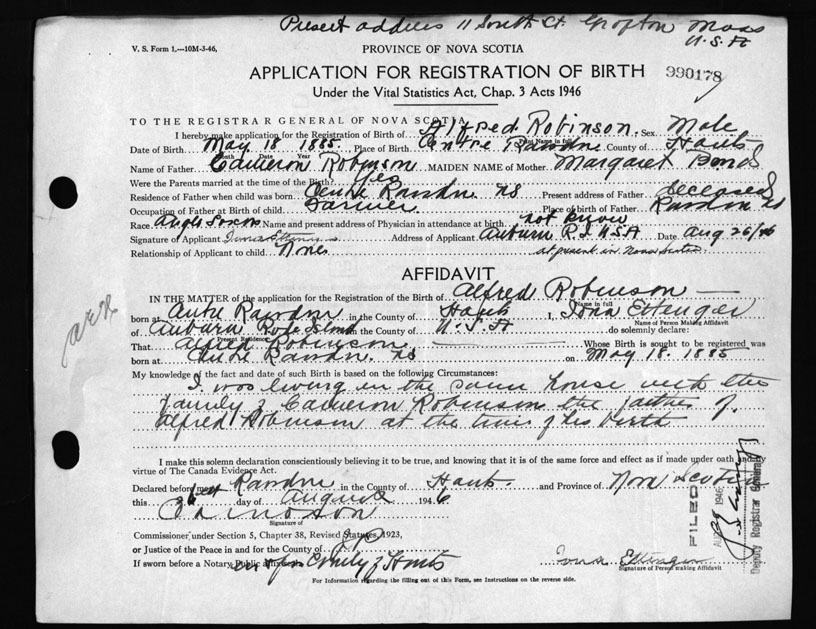 Present address 11 South St. Grafton Mass
U.S.A
V. S. Form 1.—10M-3-46.
PROVINCE OF NOVA SCOTIA
APPLICATION FOR REGISTRATION OF BIRTH
990178
Under the Vital Statistics Act, Chap. 3 Acts 1946
TO THE REGISTRAR GENERAL OF NOVA SCOTIA
I hereby make application for the Registration of Birth of Alfred Robinson. Sex Male
Print Name in full
Date of Birth May 18 1885. Place of Birth Centre Rawdon County of Hants
Month Date Year
Name of Father Cameron Robinson MAIDEN NAME of Mother Margaret Bond
Were the Parents married at the time of the Birth? Yes
Residence of Father when child was born Centre Rawdon NS Present address of Father Deceased
Occupation of Father at Birth of child Farmer Place of birth of Father Rawdon NS
Race Anglo Saxon Name and present address of Physician in attendance at birth not known
Signature of Applicant Iona Ettinger Address of Applicant Auburn R.I. USA Date Aug 26/46
Relationship of Applicant to child None at present in Nova Scotia
AFFIDAVIT
IN THE MATTER of the application for the Registration of the Birth of Alfred Robinson
Name in full
born at Centre Rawdon in the County of Hants I, Iona Ettinger
Name of Person Making Affidavit
of Auburn Rode Island of the County of U.S.A do solemnly declare:
Present Residence
That Alfred Robinson Whose Birth is sought to be registered was
born at Centre Rawdon NS on May 18. 1885
My knowledge of the fact and date of such Birth is based on the following Circumstances:
I was living in the same house with the
family of Cameron Robinson the father of
Alfred Robinson at the time of his birth
I make this solemn declaration conscientiously believing it to be true, and knowing that it is of the same force and effect as if made under oath and by
virtue of The Canada Evidence Act.
Declared before me at Rawdon in the County of Hants and Province of Nova Scotia
this day of August 1946
Signature of
Commissioner under Section 5, Chapter 38, Revised Statutes, 1923,
or Justice of the Peace in and for the County of J.P.
If sworn before a Notary Public in and for County of Hants
Iona Ettinger
Signature of Person making Affidavit
For Information regarding the filling out of this Form, see Instructions on the reverse side.
FILED
AUG 29 1946
Deputy Registrar General